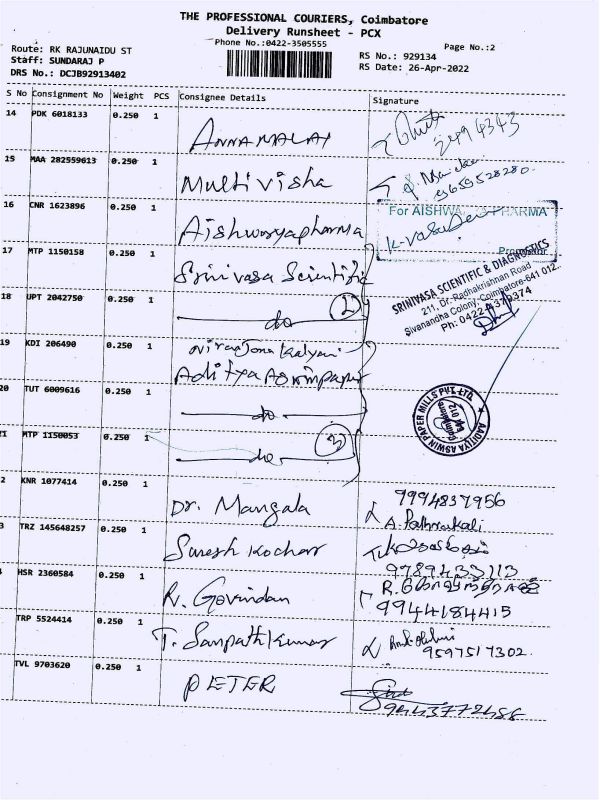 THE PROFESSIONAL COURIERS, Coimbatore
Delivery Runsheet - PCX
Phone No.:0422-3505555
Page No.:2
Route: RK RAJUNAIDU ST
Staff: SUNDARAJ P
DRS No.: DCJB92913402
RS No.: 929134
RS Date: 26-Apr-2022
S No Consignment No Weight PCS Consignee Details Signature
14 PDK 6018133 0.250 1
ANNAMALAI
15 MAA 282559613 0.250 1
Multi visha
9659528280
16 CNR 1623896 0.250 1
Aishwaryapharma
For AISHWARYA PHARMA
K. Vasudevan
Proprietor
17 MTP 1150158 0.250 1
Srinivasa Scientific
SRINIVASA SCIENTIFIC & DIAGNOSTICS
211, Dr. Radhakrishnan Road
Sivanandha Colony, Coimbatore-641 012.
18 UPT 2042750 0.250 1
do
2
19 KDI 206490 0.250 1
Aditya Aswinpaper
20 TUT 6009616 0.250 1
do
AADITYA ASWIN PAPER MILLS PVT. LTD.
Coimbatore
21 MTP 1150053 0.250 1
do
3
2 KNR 1077414 0.250 1
Dr. Mangala
9994837956
3 TRZ 145648257 0.250 1
Suresh Kochar
9789433113
HSR 2360584 0.250 1
R. Govindan
9944184415
TRP 5524414 0.250 1
T. Sampathkumar
9597517302
TVL 9703620 0.250 1
PETER